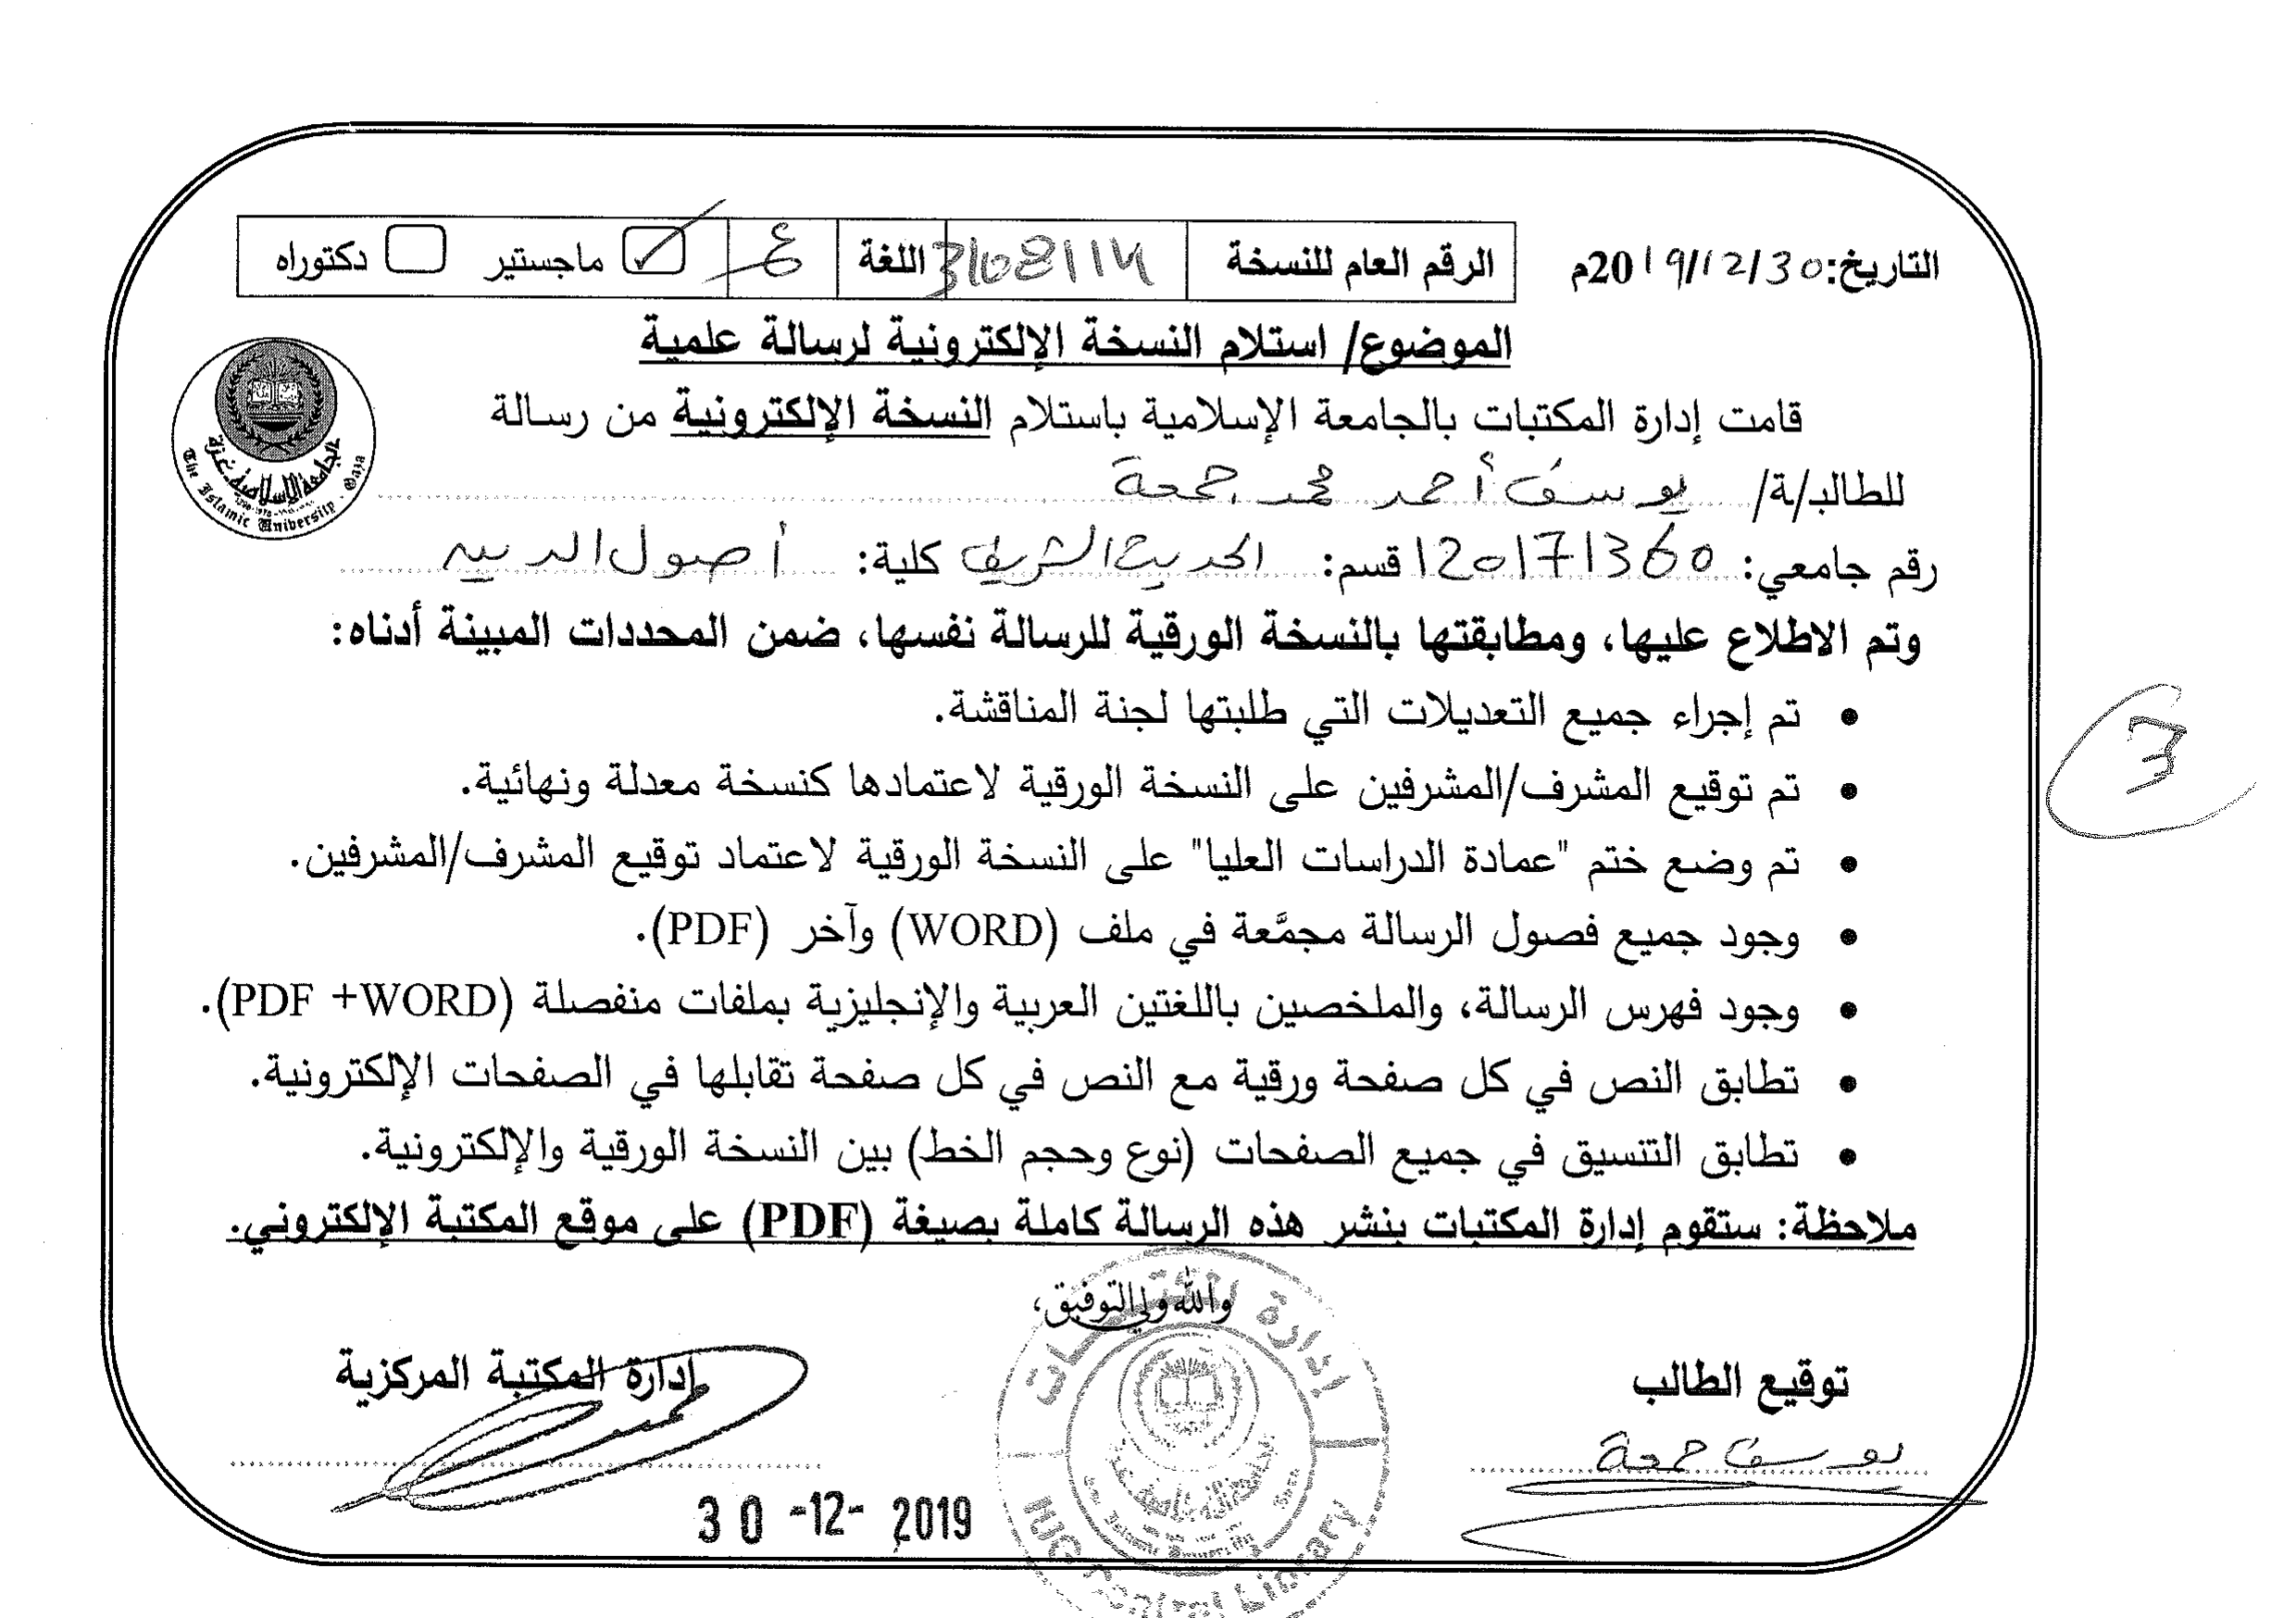 التاريخ: 2019/12/30م
الرقم العام للنسخة
اللغة ع
ماجستير
دكتوراه
الموضوع/ استلام النسخة الإلكترونية لرسالة علمية
قامت إدارة المكتبات بالجامعة الإسلامية باستلام النسخة الإلكترونية من رسالة
للطالب/ة/ يوسف أحمد محمد جمعة
رقم جامعي: 120171360 قسم: الحديث الشريف كلية: أصول الدين
وتم الاطلاع عليها، ومطابقتها بالنسخة الورقية للرسالة نفسها، ضمن المحددات المبينة أدناه:
• تم إجراء جميع التعديلات التي طلبتها لجنة المناقشة.
• تم توقيع المشرف/المشرفين على النسخة الورقية لاعتمادها كنسخة معدلة ونهائية.
• تم وضع ختم "عمادة الدراسات العليا" على النسخة الورقية لاعتماد توقيع المشرف/المشرفين.
• وجود جميع فصول الرسالة مجمَّعة في ملف (WORD) وآخر (PDF).
• وجود فهرس الرسالة، والملخصين باللغتين العربية والإنجليزية بملفات منفصلة (PDF +WORD).
• تطابق النص في كل صفحة ورقية مع النص في كل صفحة تقابلها في الصفحات الإلكترونية.
• تطابق التنسيق في جميع الصفحات (نوع وحجم الخط) بين النسخة الورقية والإلكترونية.
ملاحظة: ستقوم إدارة المكتبات بنشر هذه الرسالة كاملة بصيغة (PDF) على موقع المكتبة الإلكتروني.
والله ولي التوفيق،
توقيع الطالب
إدارة المكتبة المركزية
يوسف جمعة
30 -12- 2019
الجامعة الإسلامية غزة
The Islamic University · Gaza
إدارة المكتبات
IUG Central Library